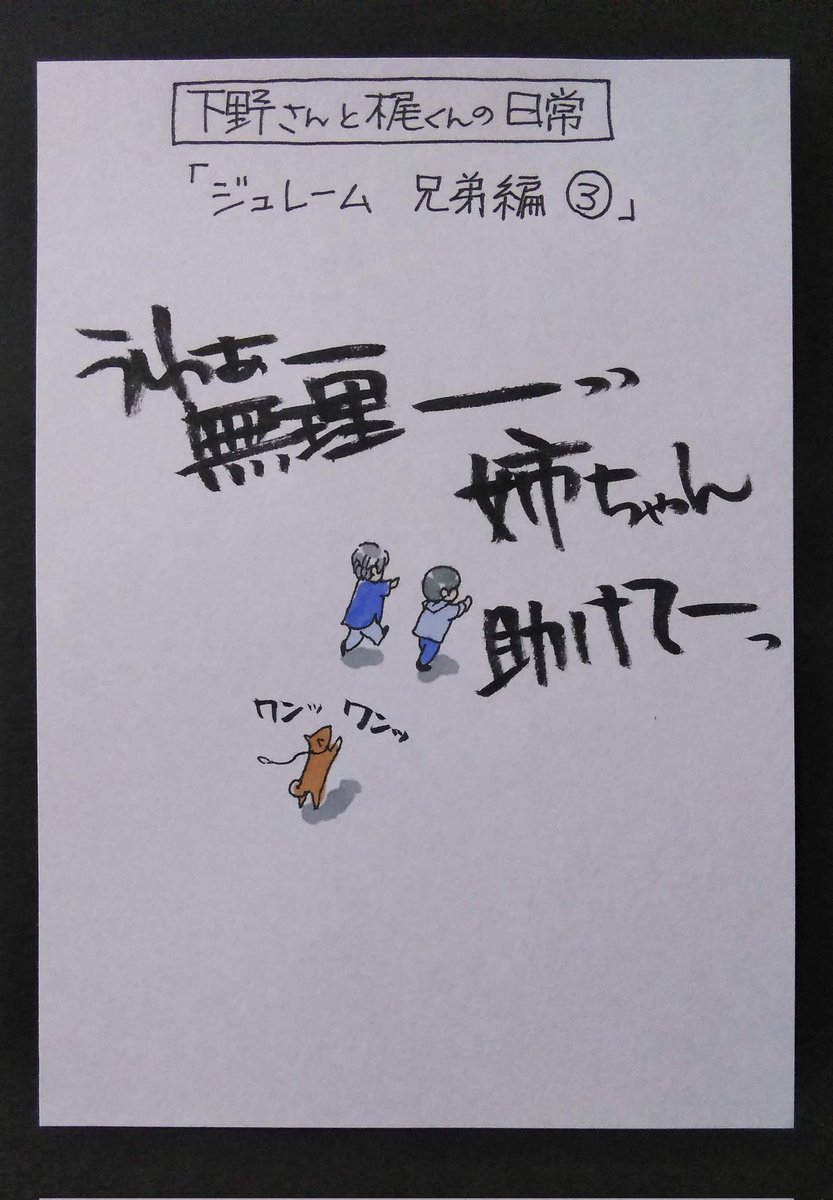 下野さんと梶くんの日常
「ジュレーム 兄弟編 ③」
うわぁー
無理ーッ
姉ちゃん
助けてーっ
ワンッ ワンッ